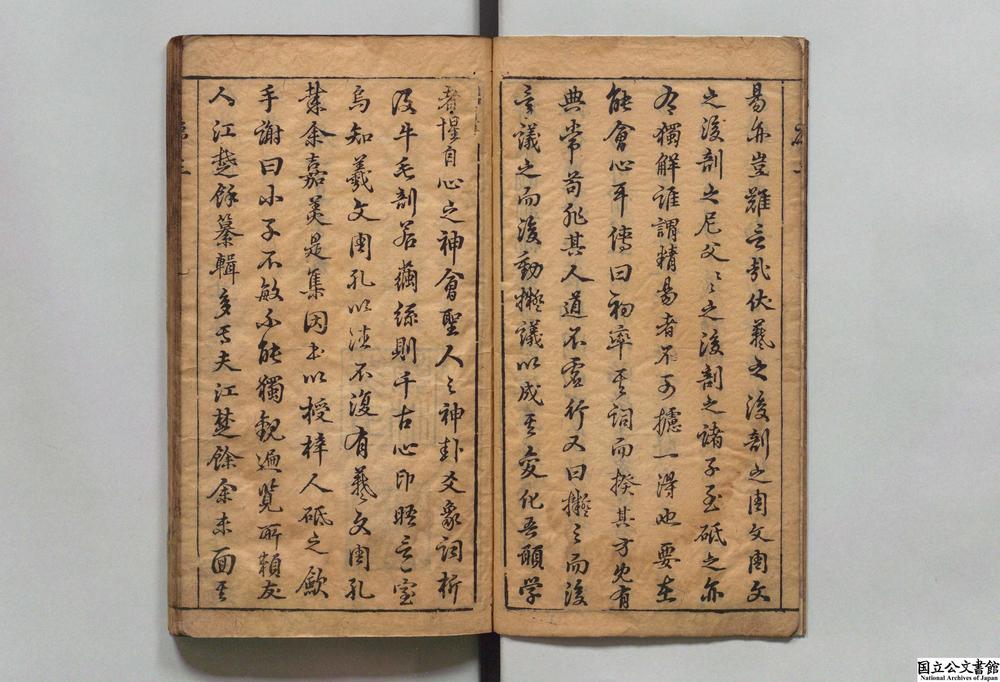 易亦豈難言哉伏羲之後剖之周文周文
之後剖之尼父々々之後剖之諸子至砥之亦
有獨解誰謂精易者不可據一得也要在
能會心耳傳曰初率其詞而揆其方既有
典常苟非其人道不虛行又曰擬之而後
言議之而後動擬議以成其變化吾願学
者惺自心之神會聖人之神卦爻象詞析
及牛毛剖若繭絲則千古心印晤言一室
烏知羲文周孔以往不復有羲文周孔
業余嘉美是集因出以授梓人砥之歛
手謝曰小子不敏不能獨觀遍覧所賴友
人江楚餘纂輯多焉夫江楚餘余未面其
国立公文書館
National Archives of Japan